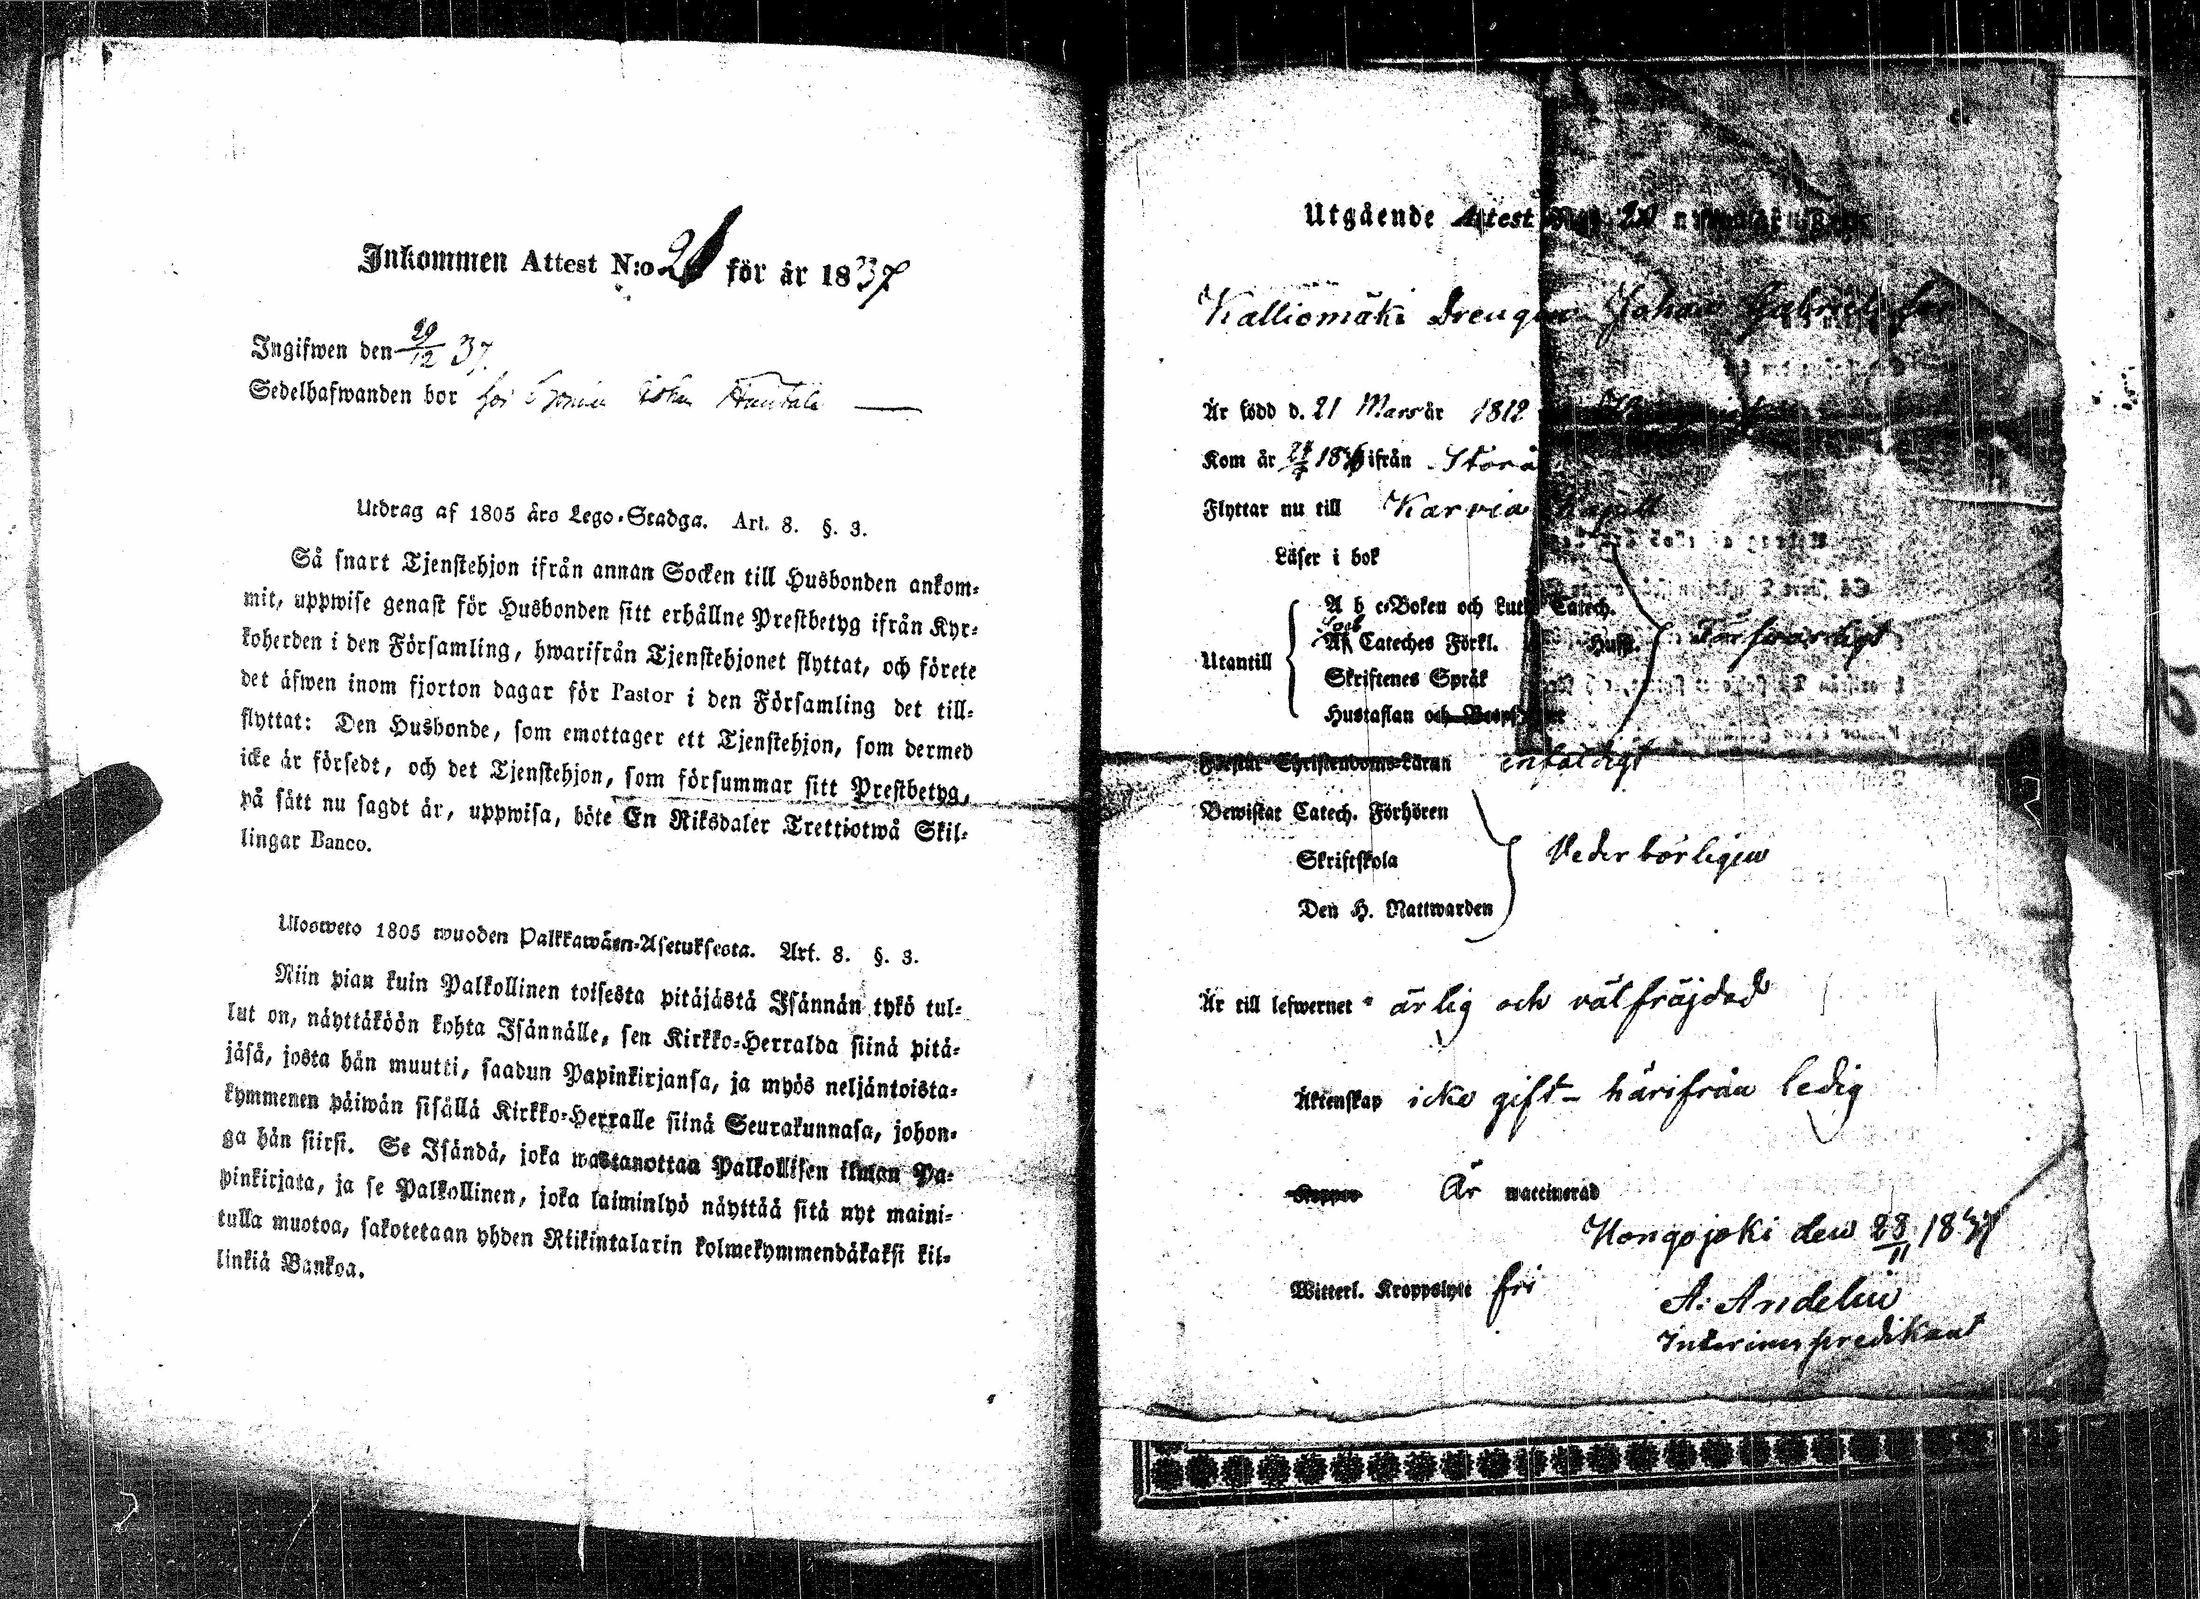 Inkommen Attest N:o för år 1837
Ingifwen den 29/12 37.
Sedelhafwanden bor hos
Utdrag af 1805 års Lego-Stadga. Art. 8. §. 3.
Så snart Tjenstehjon ifrån annan Socken till Husbonden ankom-
mit, uppwise genast för Husbonden sitt erhållne Prestbetyg ifrån Kyr-
koherden i den Församling, hwarifrån Tjenstehjonet flyttat, och förete
det äfwen inom fjorton dagar för Pastor i den Församling det till-
flyttat: Den Husbonde, som emottager ett Tjenstehjon, som dermed
icke är försedt, och det Tjenstehjon, som försummar sitt Prestbetyg,
på sätt nu sagdt är, uppwisa, böte En Riksdaler Trettiotwå Skil-
lingar Banco.
Ulosweto 1805 wuoden Palkkawäen-Asetuksesta. Art. 8. §. 3.
Niin pian kuin Palkollinen toisesta pitäjästä Isännän tykö tul-
lut on, näyttäköön kohta Isännälle, sen Kirkko-Herralda siinä pitä-
jäsä, josta hän muutti, saadun Papinkirjansa, ja myös neljäntoista-
kymmenen päiwän sisällä Kirkko-Herralle siinä Seurakunnasa, johon-
ga hän siirsi. Se Isändä, joka wastanottaa Palkollisen ilman Pa-
pinkirjata, ja se Palkollinen, joka laiminlyö näyttää sitä nyt maini-
tulla muotoa, sakotetaan yhden Riikintalarin kolmekymmendäkaksi kil-
linkiä Bankoa.
Utgående Attest
Kalliomäki Drengen Johan Gabriel
Är född d. 21 Mars år 1812
Kom år 18 ifrån Storå
Flyttar nu till Karvia Kapell
Läser i bok
A b c-Boken och Luth. Catech.
Utantill
Cateches Förkl. Husl. Försvarligt
Skriftenes Språk
Hustaflan och
Förstår Christendoms-Läran enfaldigt
Bewistat Catech. Förhören
Skriftskola Vederbörligen
Den H. Nattwarden
Är till lefwernet ärlig och välfräjdad
Äktenskap icke gift - härifrån ledig
Koppor Är waccinerad
Hongojoki den 28/11 1837
Witterl. Kroppslyte fri
A: Andelin
Interimspredikant